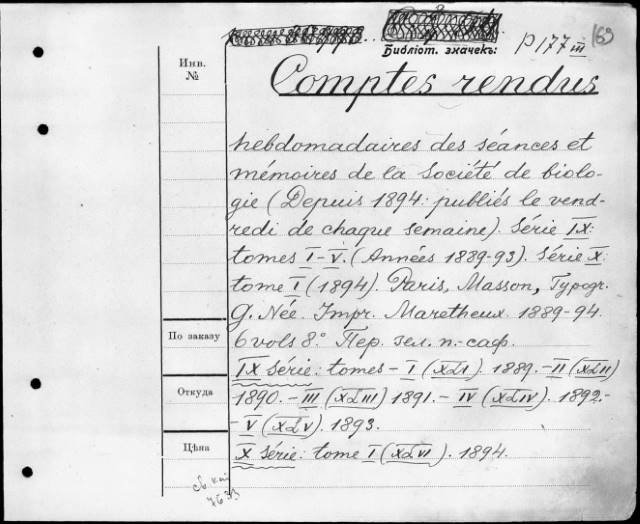 Библіот. значекъ: P 177 III
163
Инв.
№
Comptes rendus
hebdomadaires des séances et
mémoires de la Société de biolo-
gie (Depuis 1894: publiés le vend-
redi de chaque semaine). Série IX:
tomes I-V. (Années 1889-93). Série X:
tome I (1894). Paris, Masson, Typogr.
G. Née. Impr. Maretheux. 1889-94.
По заказу
6 vols 8° Пер. зел. п.-саф.
IX Série: tomes - I (XLI). 1889. - II (XLII)
Откуда
1890. - III (XLIII) 1891. - IV (XLIV). 1892.-
- V (XLV). 1893.
Цѣна
X Série: tome I (XLVI). 1894.
7633